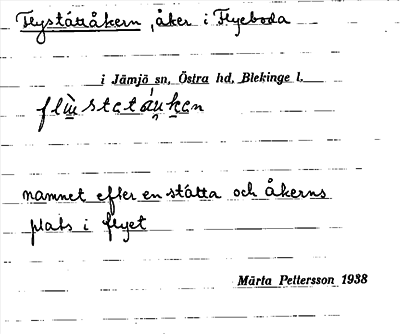 Flystättåkern, åker i Flyeboda
i Jämjö sn, Östra hd, Blekinge l.
namnet efter en stätta och åkerns
plats i flyet
Märta Pettersson 1938